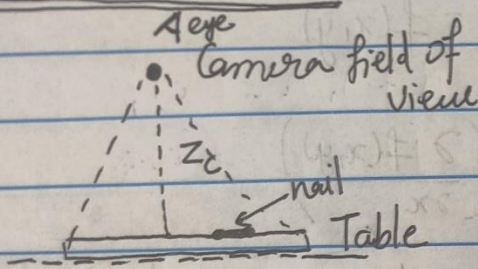 A eye
Camera field of
view
Zc
nail
Table